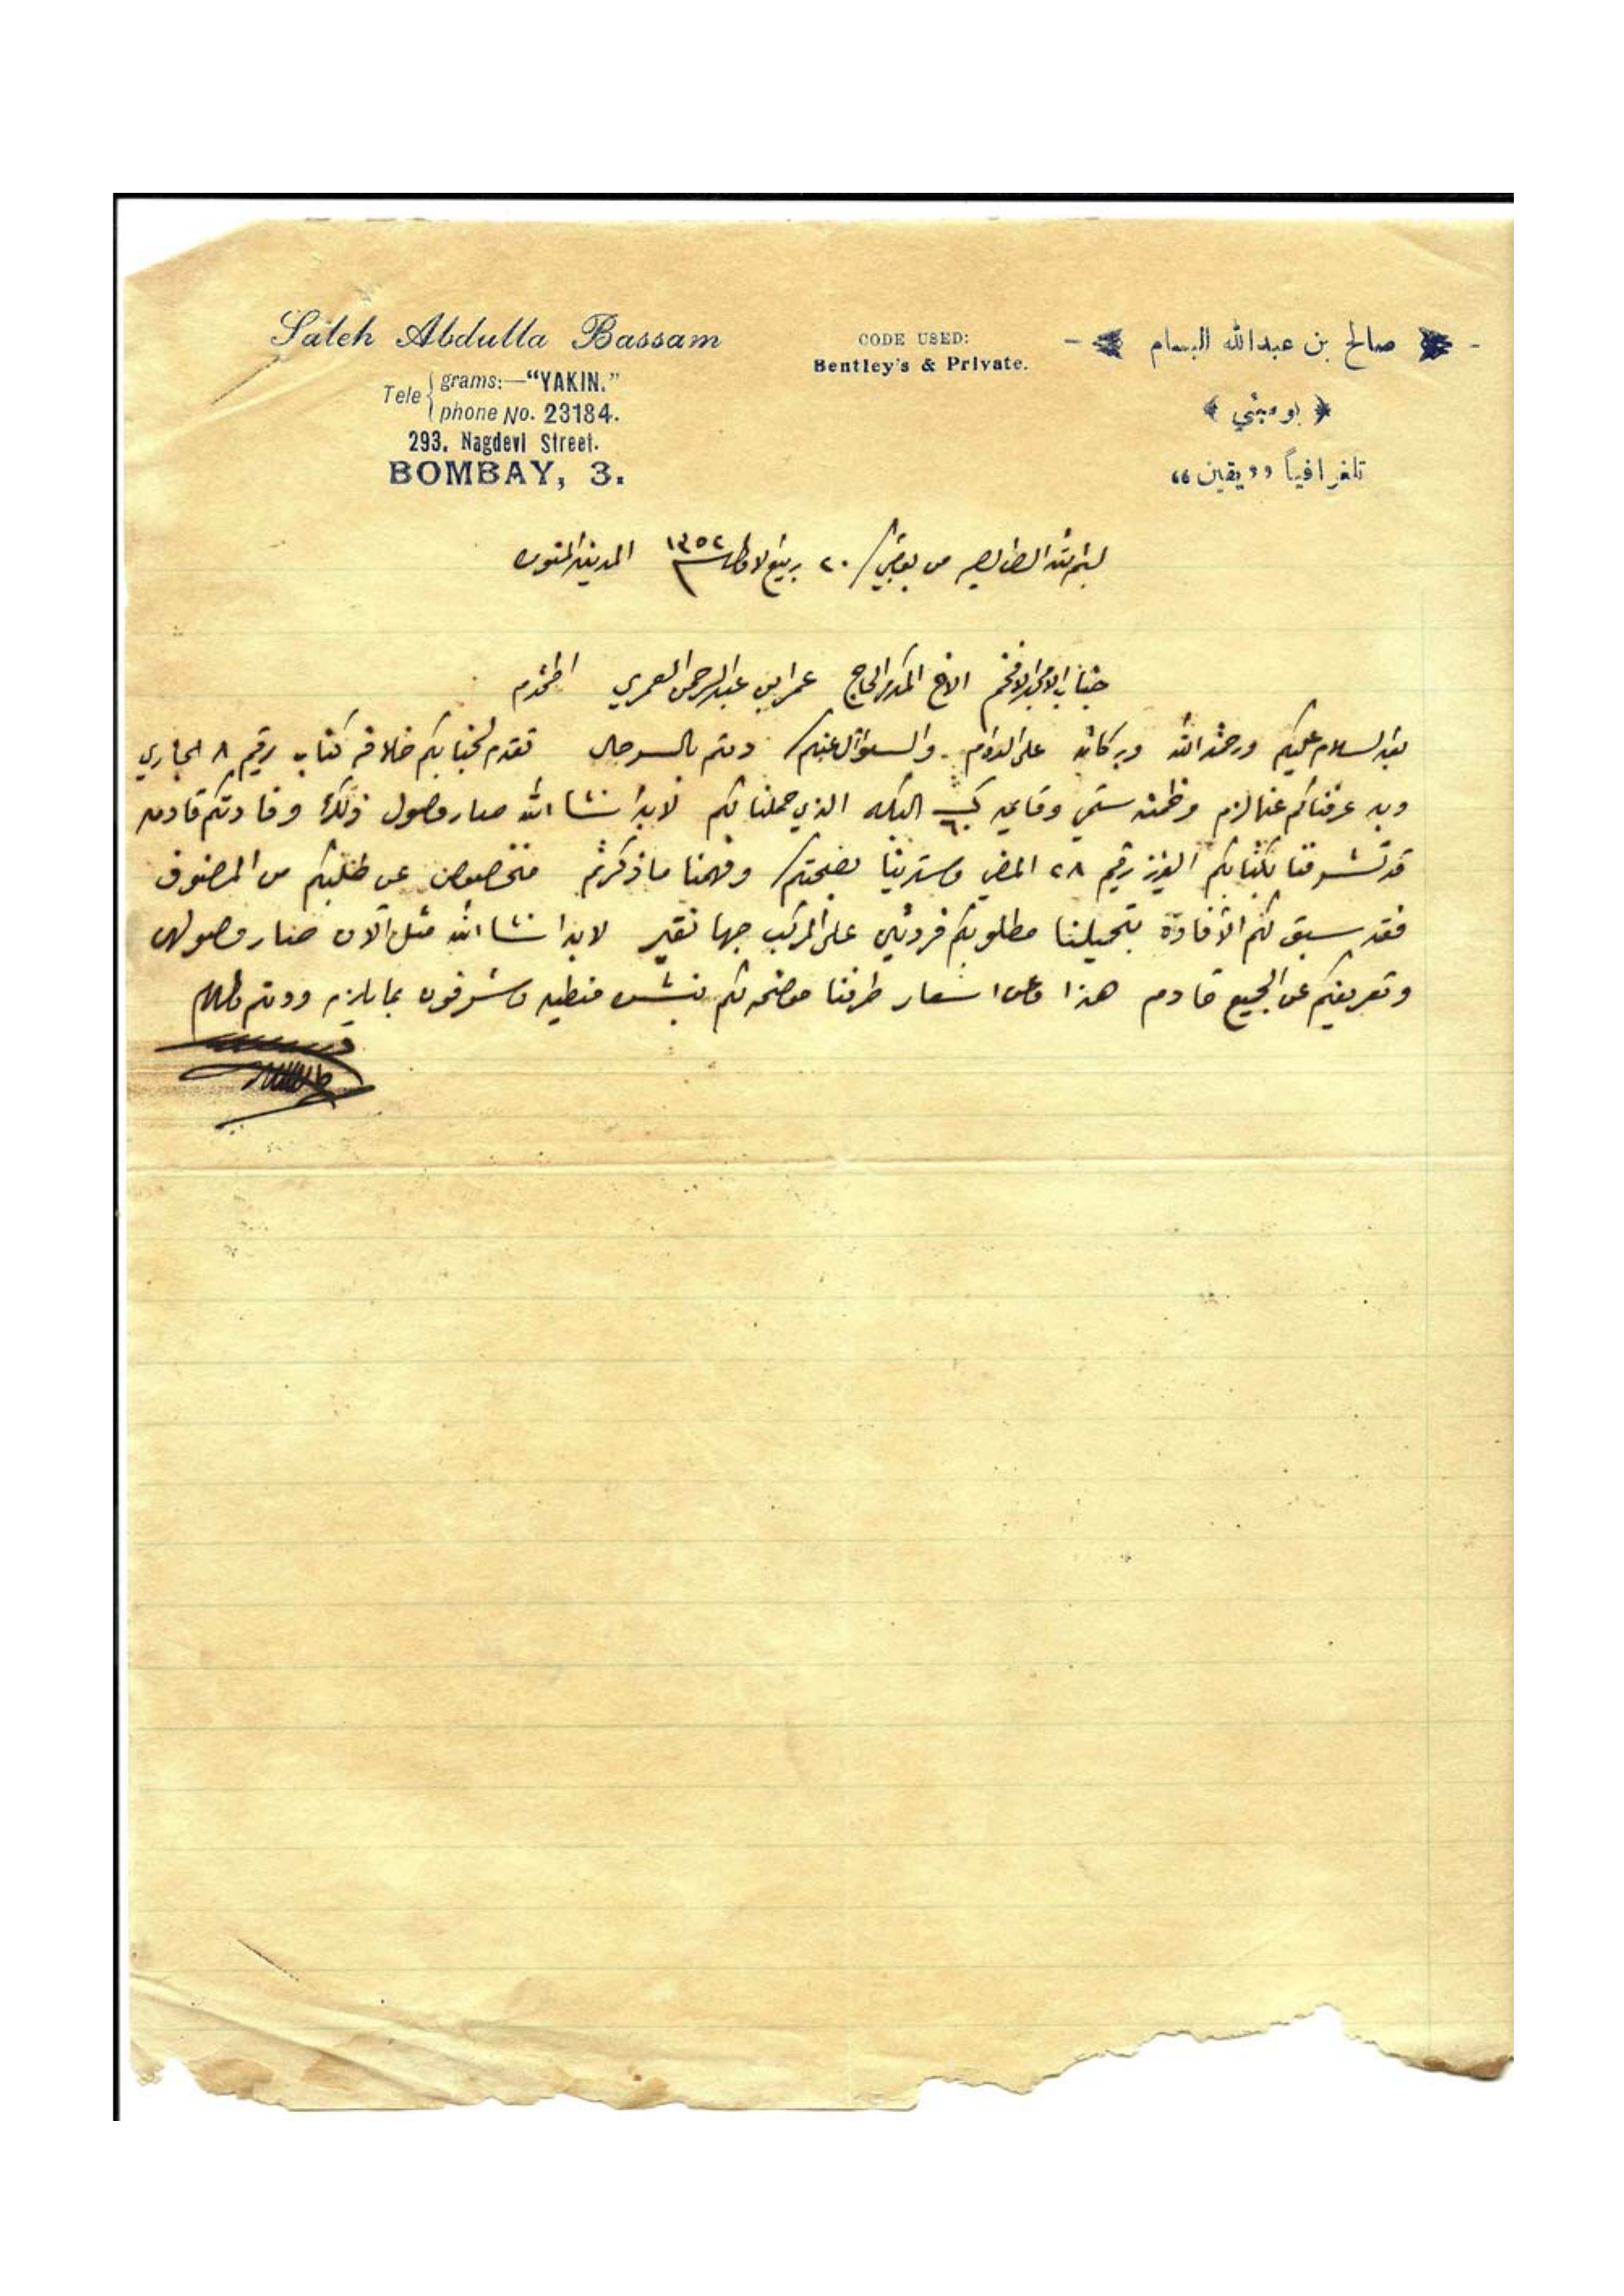 Saleh Abdulla Bassam
Telegrams:—"YAKIN."
Telephone No. 23184.
293, Nagdevi Street.
BOMBAY, 3.
CODE USED:
Bentley's & Private.
صالح بن عبدالله البسام
بومبئي
تلغرافياً ,,يقين"
بسم الله الرحمن الرحيم من بمبي / ٢٠ ربيع الاول سنة ١٣٥٢ المدينة المنوره
جناب الامجد الافخم الاخ المكرم الحاج عمر ابن عبد الرحمن العمري المحترم
بعد السلام عليكم ورحمة الله وبركاته على الدوام والسؤال عنكم دمتم بالسرحال تقدم لجنابكم خلافه كتاب رقيم ٨ الجاري
وبه عرفناكم عنها لزم الذي حملنا لكم لابد انشا الله صار وصول ذلك وفادتكم قادمه
قد تشرفنا بكتابكم العزيز رقيم ٢٨ الماضي وسرينا بصحتكم وفهمنا ما ذكرتم مخصوص عن طلبكم من المصنوف
فقد سبق لكم الافادة بتحميلنا مطلوبكم على المركب لابد انشا الله مثل الآن صار وصولهن
وتعريفكم عن الجميع قادم هذا وعن اسعار طرفنا موضحه لكم وتشرفون بما يلزم ودمتم